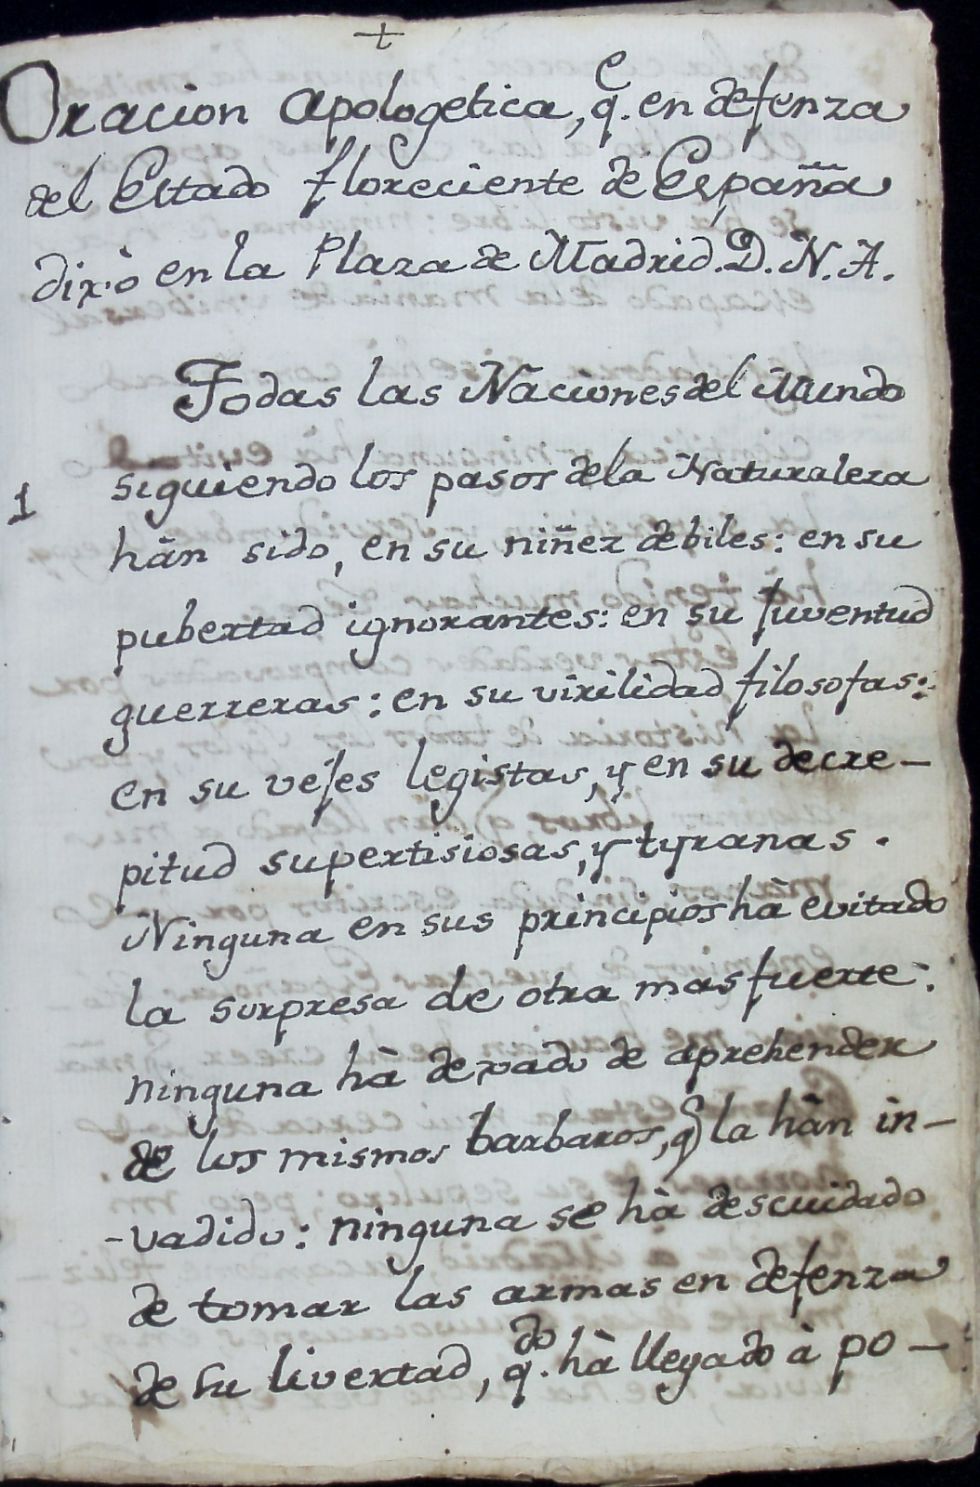 +
Oracion apologetica, q.e en defenza
del Estado floreciente de España
dixo en la Plaza de Madrid. D. N. A.
Todas las Naciones del Mundo
1 siguiendo los pasos dela Naturaleza
hàn sido, en su niñez debiles: en su
pubertad ignorantes: en su Juventud
guerreras: en su virilidad filosofas:
en su vejes legistas, y en su decre-
pitud supertisiosas, y tyranas.
Ninguna en sus principios hà evitado
la surpresa de otra mas fuerte:
ninguna hà dexado de aprehender
de los mismos barbaros, q la hàn in-
-vadido: ninguna se hà descuidado
de tomar las armas en defenza
de su livertad, q.do hà llegado à po-